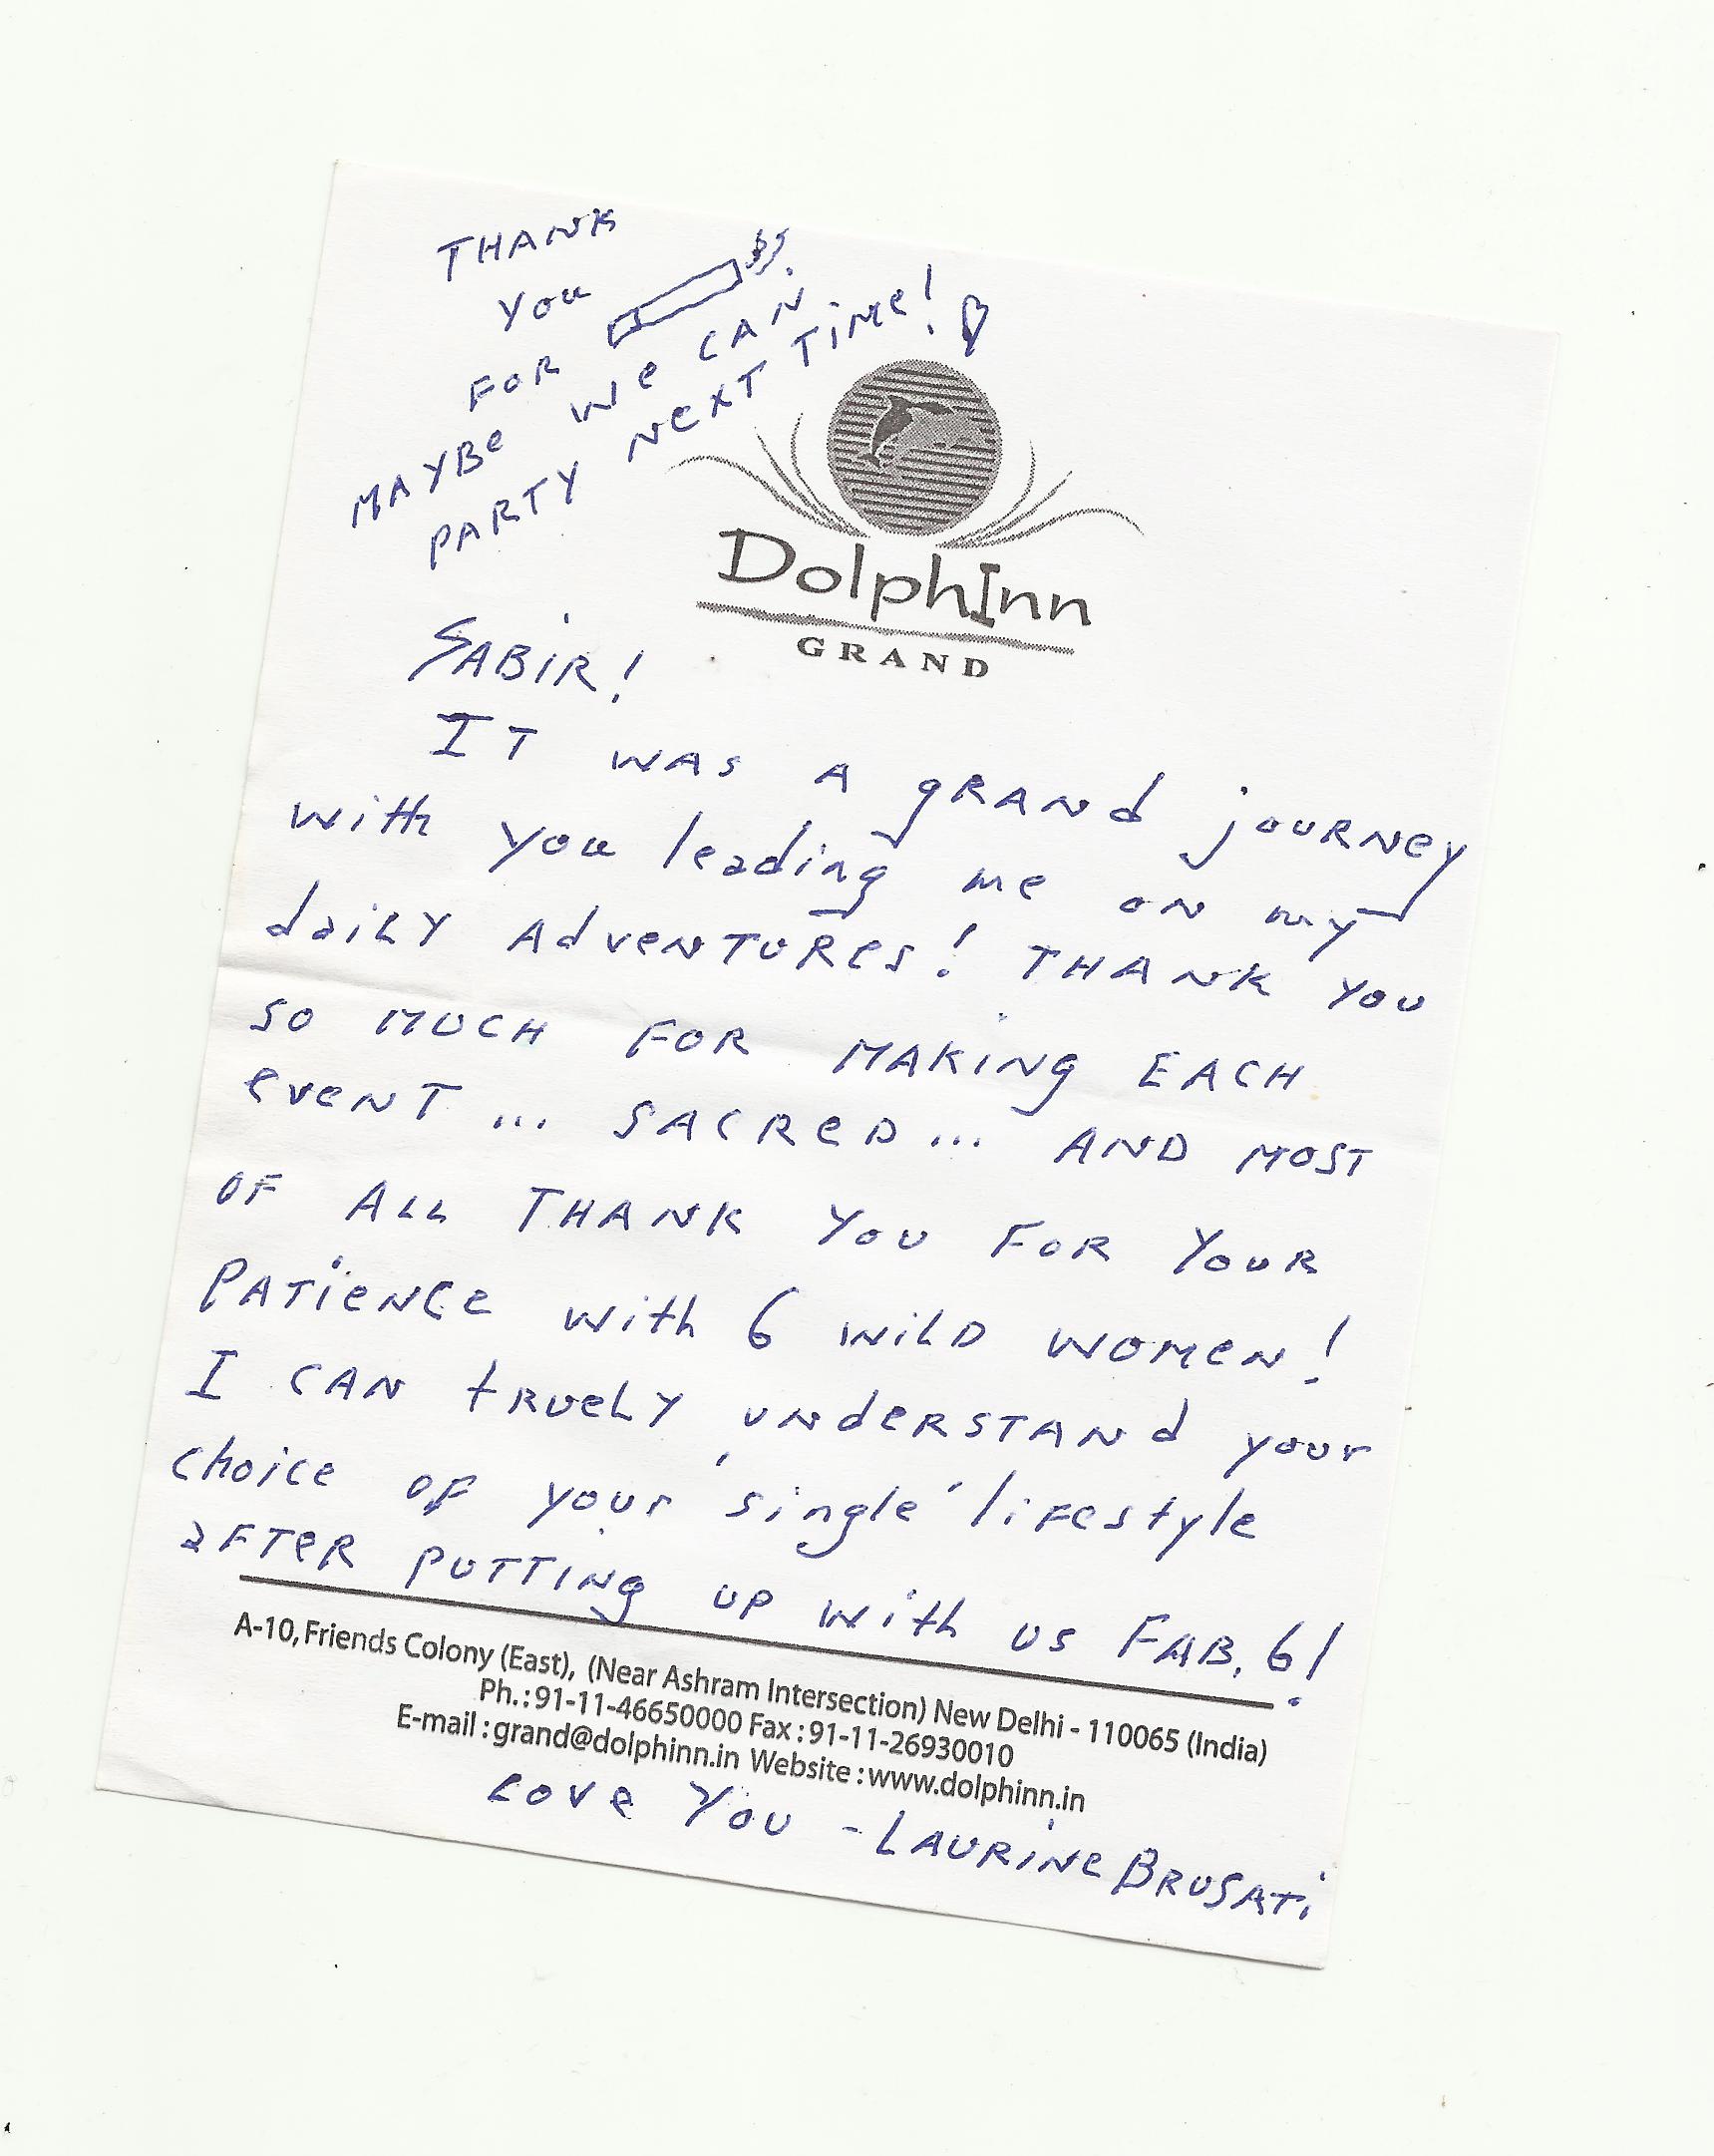 THANK
you
FOR
MAYBE WE CAN
PARTY NEXT TIME!
DolphInn
GRAND
SABIR!
IT WAS A GRAND JOURNEY
with you leading me ON my
daily AdvenTURes! THANK you
SO MUCH FOR MAKING EACH
eveNT... SACReD... AND MOST
OF ALL THANK YOU FOR YOUR
PATIENCE with 6 WILD WOMEN!
I CAN truely underSTANd your
choice OF your 'single' lifestyle
after PUTTING UP with US FAB. 6!
A-10, Friends Colony (East), (Near Ashram Intersection) New Delhi - 110065 (India)
Ph.: 91-11-46650000 Fax : 91-11-26930010
E-mail : grand@dolphinn.in Website : www.dolphinn.in
Love You - LAURINE BRUSATI